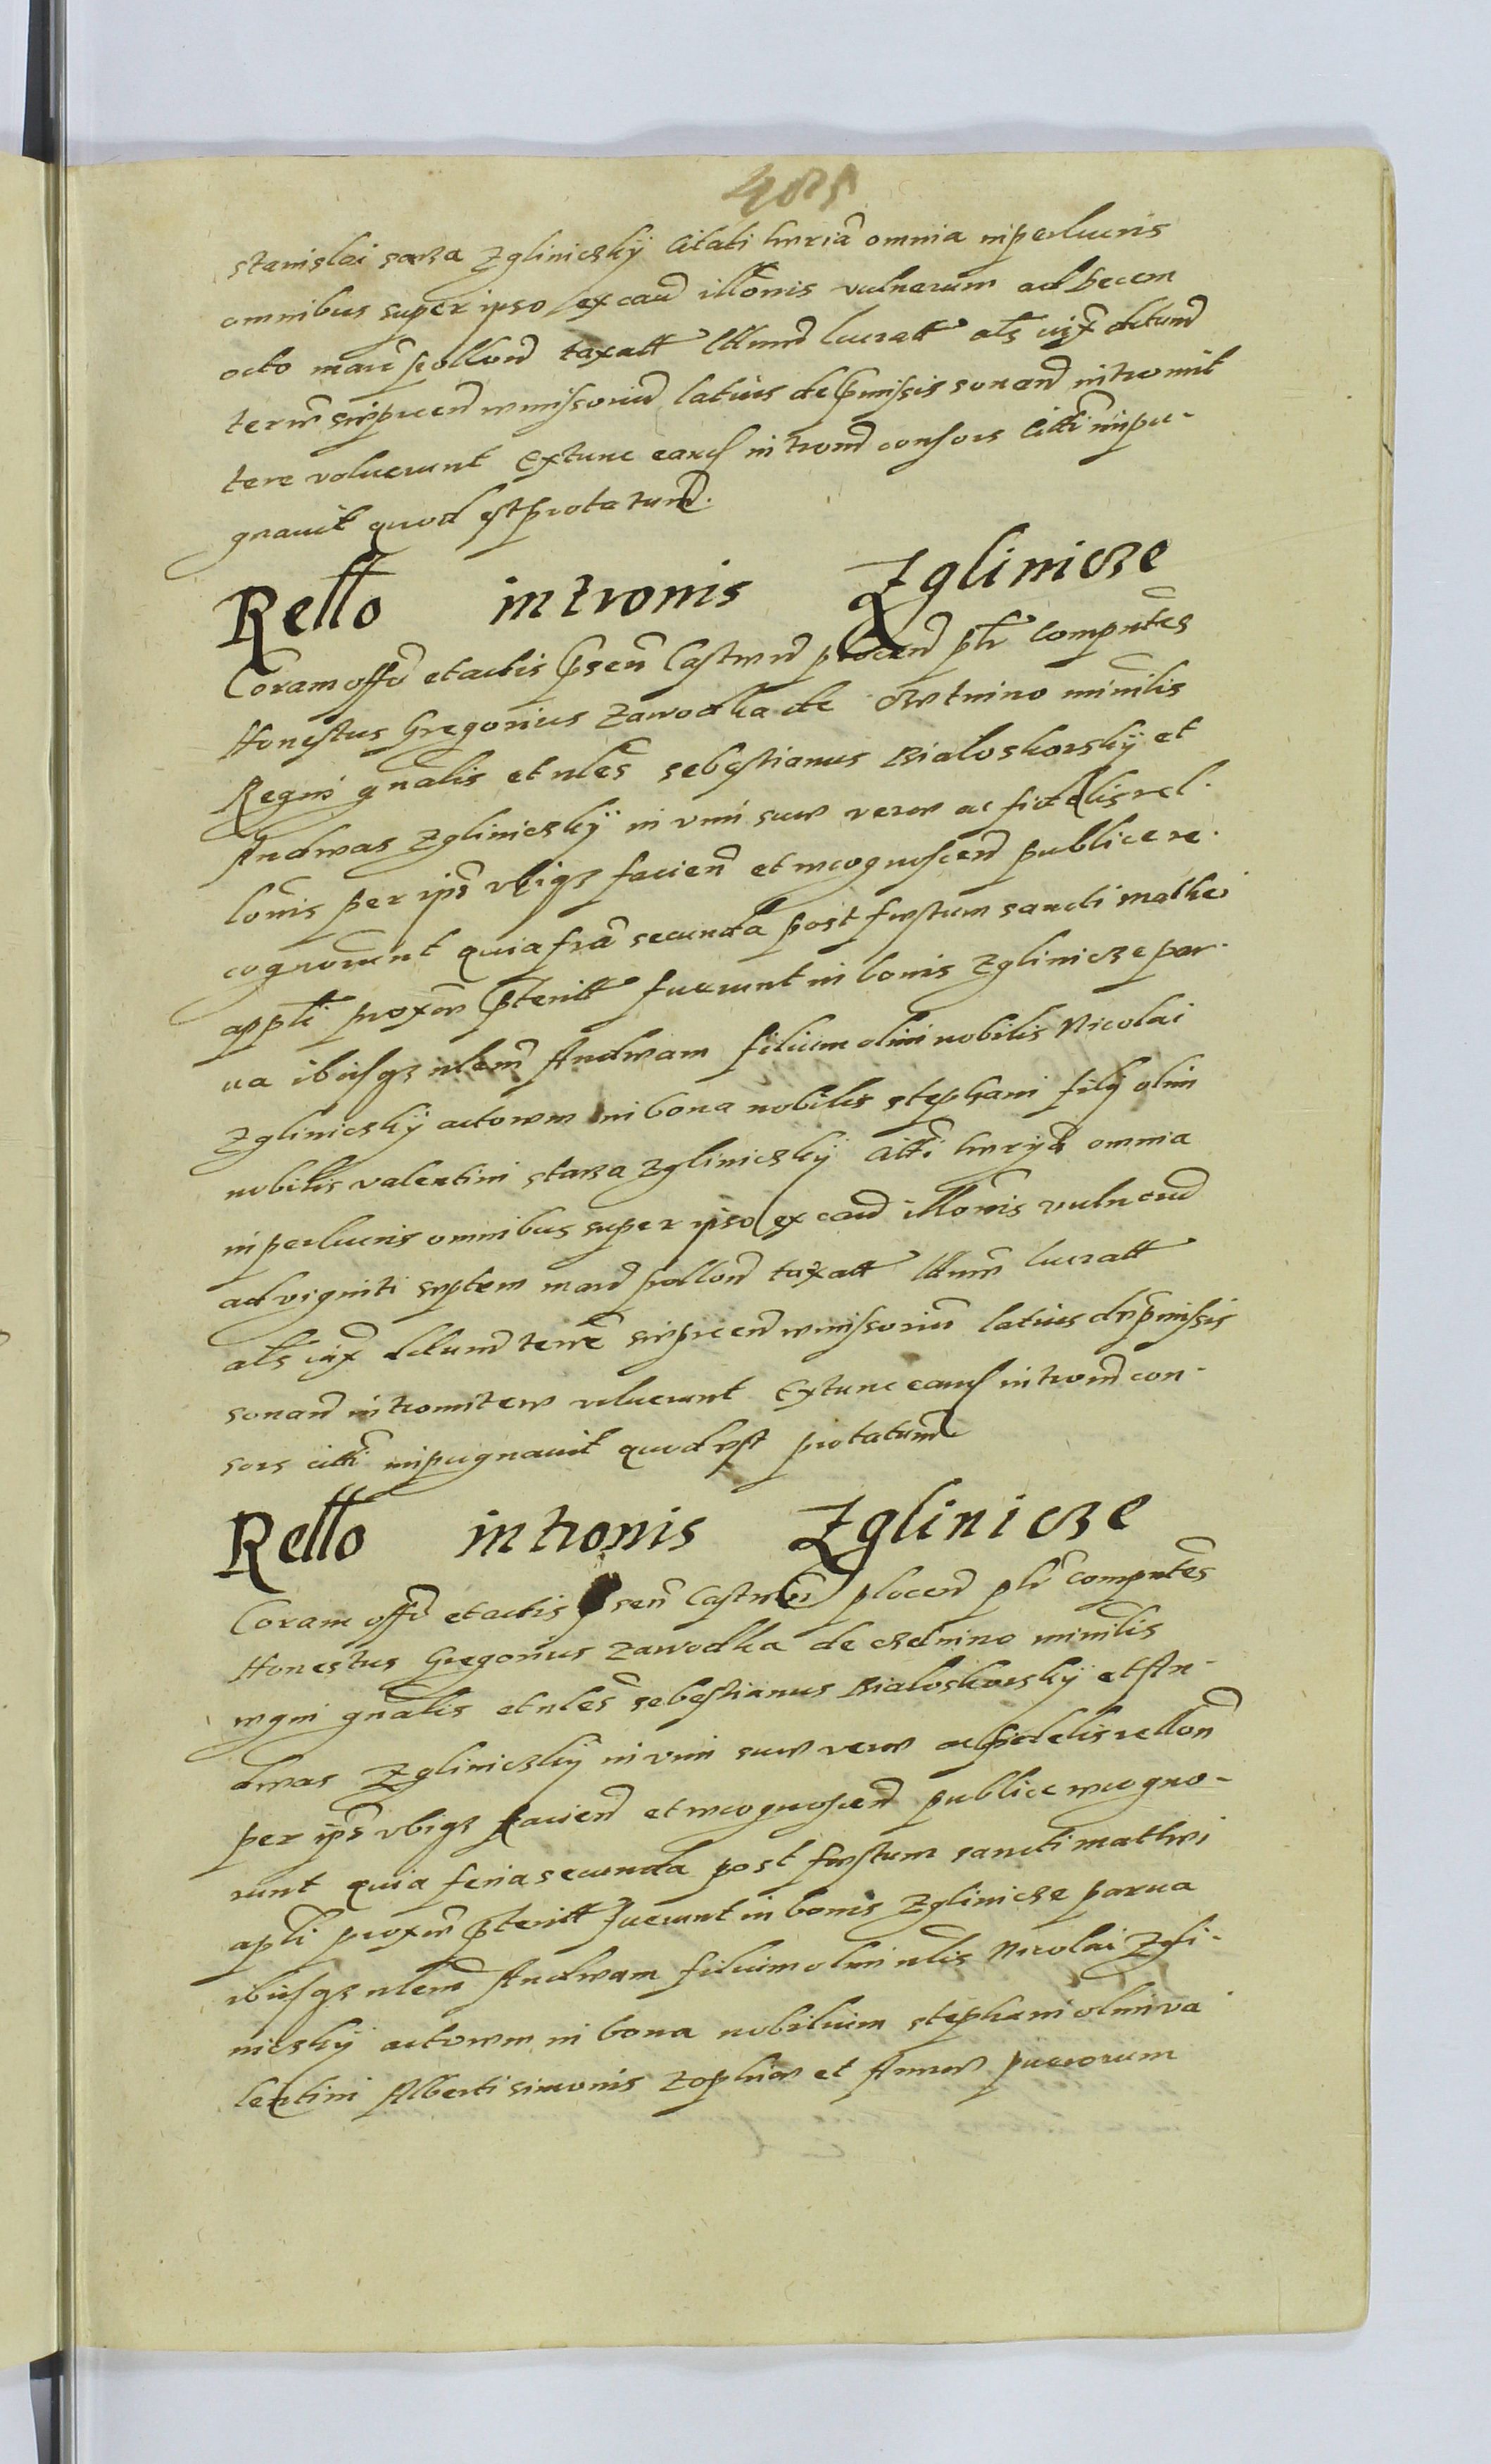 stanislai sarza Zgliniczkÿ Citati hnria omnia in perlucris
omnibus super ipso ex cau illonis vulnerum ad decem
octo marc pollon taxatt lttum lucratt als iux dctum
term sup recen remissoriu latius de pmissis sonan intromit
tere voluerunt Extunc eand introm consors Citti inpu-
gnauit quod est protatum.
Rello intronis Zglinicze
Coram offo et actis psen Castren plocen plr Computes
Honestus Gregorius Zawodka de minilis
Regni gnalis et nles sebestianus Bialoskorskÿ et
Andreas Zgliniczkÿ in vim sue vere ac fidelis rel-
lonis per ips vbiqz facien et recognoscen publice re-
cognorunt quia fria secunda post festum sancti mathei
appli proxime pteritt fuerunt in bonis Zglinicze par-
ua ibiqz nlem Andream filium olim nobilis Nicolai
Zgliniczkÿ actorem in bona nobilis stephani filÿ olim
nobilis valentini starza Zgliniczkÿ Citti hnrÿa omnia
in perlucris omnibus super ipso ex cau illonis vulneru
ad viginti septem marc pollon taxatt lttum lucratt
als iux dctum terre sup recen remissoriu latius de pmissis
sonan intromittere voluerunt Extunc eand introm con-
sors citti inpugnauit quod est protatum
Rello intronis Zglinicze
Coram offo et actis psen Castren plocen plr computes
Honestus Gregorius Zawodka de minilis
regni gnalis et nles sebestianus Bialoskorskÿ et An-
dreas Zgliniczkÿ in vim sue vere ac fidelis rellon
per ips vbiqz facien et recognoscen publice recogno-
runt quia feria secunda post festum sancti mathei
apli proxime pteritt fuerunt in bonis Zglinicze parua
ibiqz nlem Andream filium olim nlis Nicolai Zgli-
niczkÿ actorem in bona nobilium stephani olim va
lentini Alberti simonis Zophiae et Annae puerorum